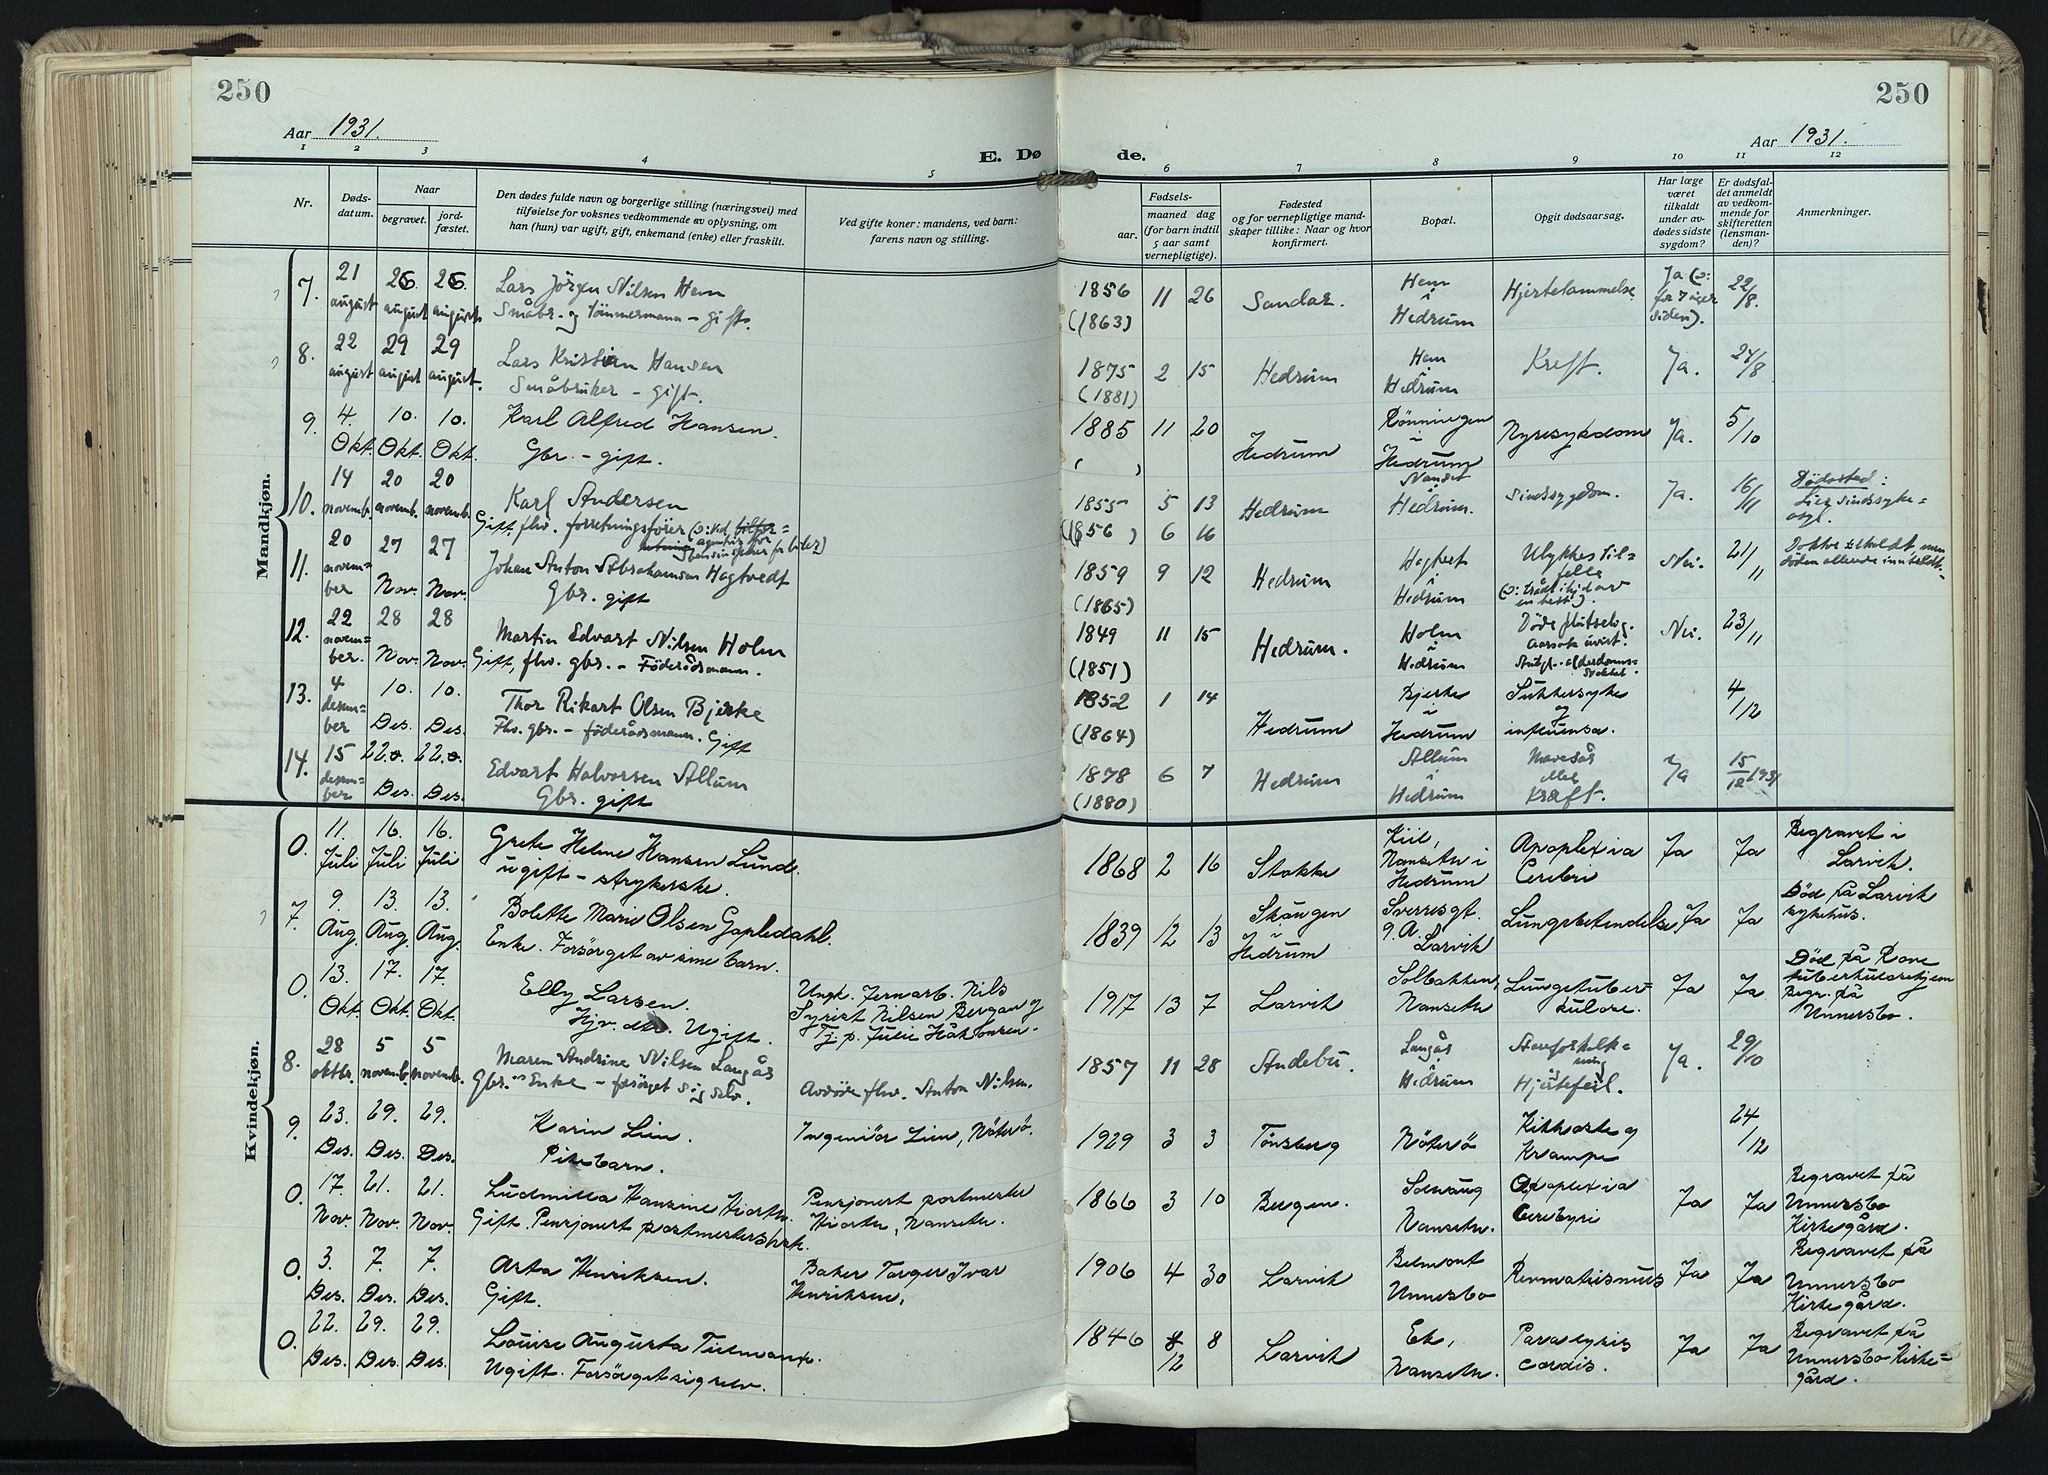 250
250
Aar 1931.
Aar 1931.
E. Dø
de.
1 2 3 4 5 6 7 8 9 10 11 12
Nr.
Døds-
datum.
Naar
begravet.
jord-
fæstet.
Den dødes fulde navn og borgerlige stilling (næringsvei) med
tilføielse for voksnes vedkommende av oplysning, om
han (hun) var ugift, gift, enkemand (enke) eller fraskilt.
Ved gifte koner: mandens, ved barn:
farens navn og stilling.
Fødsels-
aar.
maaned dag
(for barn indtil
5 aar samt
vernepligtige).
Fødested
og for vernepligtige mand-
skaper tillike: Naar og hvor
konfirmert.
Bopæl.
Opgit dødsaarsag.
Har læge
været
tilkaldt
under av-
dødes sidste
sygdom?
Er dødsfal-
det anmeldt
av vedkom-
mende for
skifteretten
(lensman-
den)?
Anmerkninger.
Mandkjøn.
7. 21 august 26 august 26 august
Lars Jörgen Nilsen Hem
Småbr. og tömmermann - gift.
1856 11 26 Sandar. Hem i Hedrum Hjertelammelse Ja (ɔ: for siden). 22/8.
(1863)
8. 22 august 29 august 29 august.
Lars Kristian Hansen
Småbruker - gift.
1875 2 15 Hedrum Hem i Hedrum Kreft. Ja. 24/8
(1881)
9. 4. Okt. 10. Okt. 10. Okt.
Karl Alfred Hansen.
Gbr. - gift.
1885 11 20 Hedrum Rønningen i Hedrum Nyresykdom Ja. 5/10
( )
10. 14 novemb. 20 novemb. 20 novemb.
Karl Andersen
Gift, fhv. forretningsfører (ɔ: ved
1855 5 13 Hedrum Nanset i Hedrum. Sindssygdom. Ja. 16/11 Dødssted: Lier Sindssyke-asyl.
(1856) 6 16
11. 20 novem=ber 27 Nov. 27 Nov.
Johan Anton Abrahamsen Hagtvedt
Gbr. gift
1859 9 12 Hedrum Hagtvet i Hedrum Ulykkestilfelle Nei. 21/11
(1865)
12. 22 novem=ber. 28 Nov. 28 Nov.
Martin Edvart Nilsen Holm
Gift, fhv. gbr. - Föderådsmann.
1849 11 15 Hedrum. Holm i Hedrum Døde plutselig. Aarsak uvist. Nei. 23/11
(1851)
13. 4 desem=ber 10. Des. 10. Des.
Thor Rikart Olsen Bjerke
Fhv. gbr. - föderådsmann. Gift
1852 1 14 Hedrum Bjerke i Hedrum Sukkersyke og influensa. 4/12
(1864)
14. 15 desem=ber 22. Des. 22. Des.
Edvart Halvorsen Allum
Gbr. gift
1878 6 7 Hedrum Allum i Hedrum Mavesår eller Kraft. Ja 15/12 1931
(1880)
Kvindekjøn.
0. 11. Juli 16. Juli 16. Juli
Grete Helene Hansen Lund.
ugift - strykerske.
1868 2 16 Stokke Kiil, Nanseth i Hedrum Apoplexia Cerebri Ja Ja Begravet i Larvik.
7. 9. Aug. 13. Aug. 13. Aug.
Bolette Marie Olsen Gopledahl.
Enke. Forsörget av sine barn.
1839 12 13 Skången i Hedrum Sverresgt. 9. A. Larvik Lungebetendelse Ja Ja Död på Larvik sykehus.
0. 13. Okt. 17. Okt. 17. Okt
Elly Larsen.
Hjv. dtr. Ugift.
Ungk. Jernarb. Nils
Syvert Nilsen Bergan og
Tj. p. Julie Håkonsen.
1917 13 7 Larvik Solbakken, Nanseth Lungetuberkulose. Ja Ja Död på Rove tuberkulosehjem Begr. på Unnersbo.
8. 28 oktbr. 5 novemb. 5 novemb.
Maren Andrine Nilsen Langås
Gbr. Enke - forsörget sig selv.
Avdöde fhv. Anton Nilsen.
1857 11 28 Andebu. Langås i Hedrum Aareforkalkning Hjertefeil. Ja. 29/10
9. 23. Des. 29. Des. 29. Des.
Karin Lien.
Pikebarn.
Ingeniör Lien, Nöterö.
1929 3 3 Tönsberg Nöterö Kikhoste og Krampe 24/12
0. 17. Nov. 21. Nov. 21. Nov.
Ludmilla Hansine Hiorth.
Gift. Pensjonert postmesters
Pensjonert postmester
Hiorth, Nanseth.
1866 3 10 Bergen. Solvang Nanseth. Apoplexia Cerebri Ja Ja Begravet på Unnersbo Kirkegård.
0. 3. Des. 7. Des. 7. Des.
Asta Henriksen.
Gift.
Baker Torger Ivar
Henriksen,
1906 4 30 Larvik Belmont Unnersbo Revmatismus Ja Ja Begravet på Unnersbo Kirkegård.
0. 22. Des. 29. Des. 29. Des.
Louise Augusta
Ugift. Forsörget sig selv.
1846 12 8 Larvik Ek, Nanseth. Paralysis cordis. Ja Ja Begravet på Unnersbo Kirke=gård.